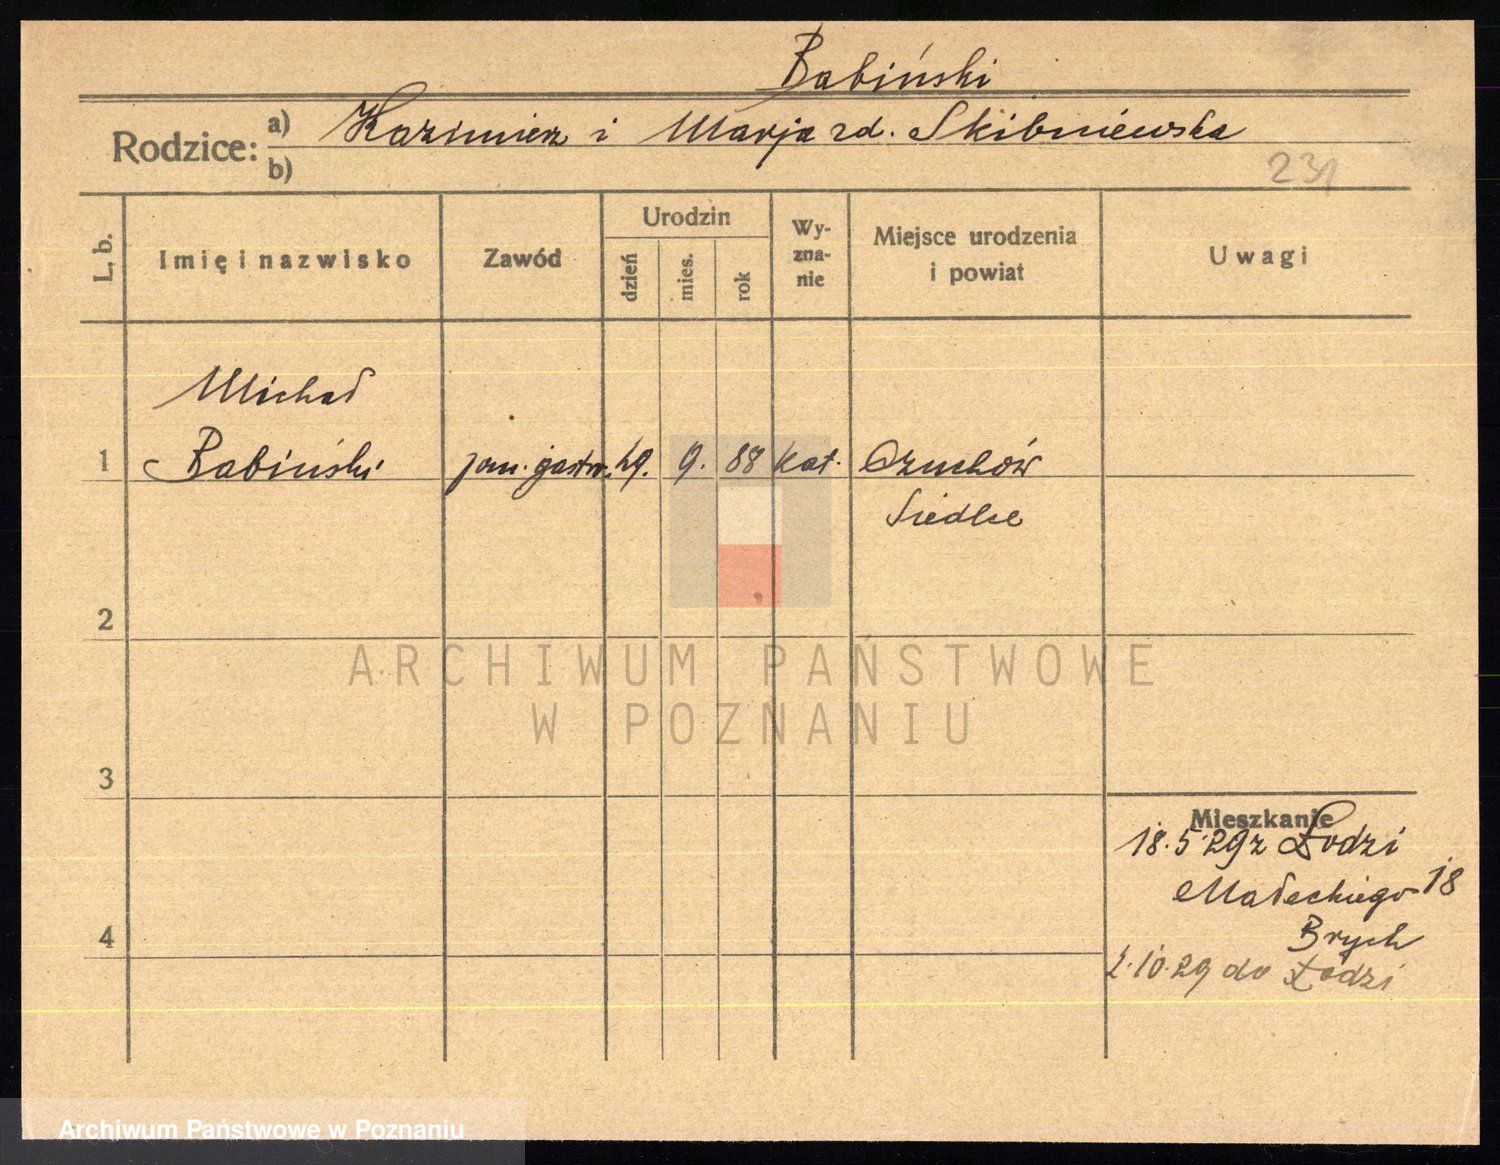 Babiński
Rodzice: a) Kazimierz i Marja zd. Skibniewska
b)
231
L. b.
Imię i nazwisko
Zawód
Urodzin
dzień
mies.
rok
Wy-
zna-
nie
Miejsce urodzenia
i powiat
Uwagi
Michał
1 Babiński 29. 9. 88 kat. Czuchów
Siedlce
2
3
4
Mieszkanie
18.5.29 z Łodzi
Małeckiego 18
Brych
2.10.29 do Łodzi
ARCHIWUM PAŃSTWOWE
W POZNANIU
Archiwum Państwowe w Poznaniu